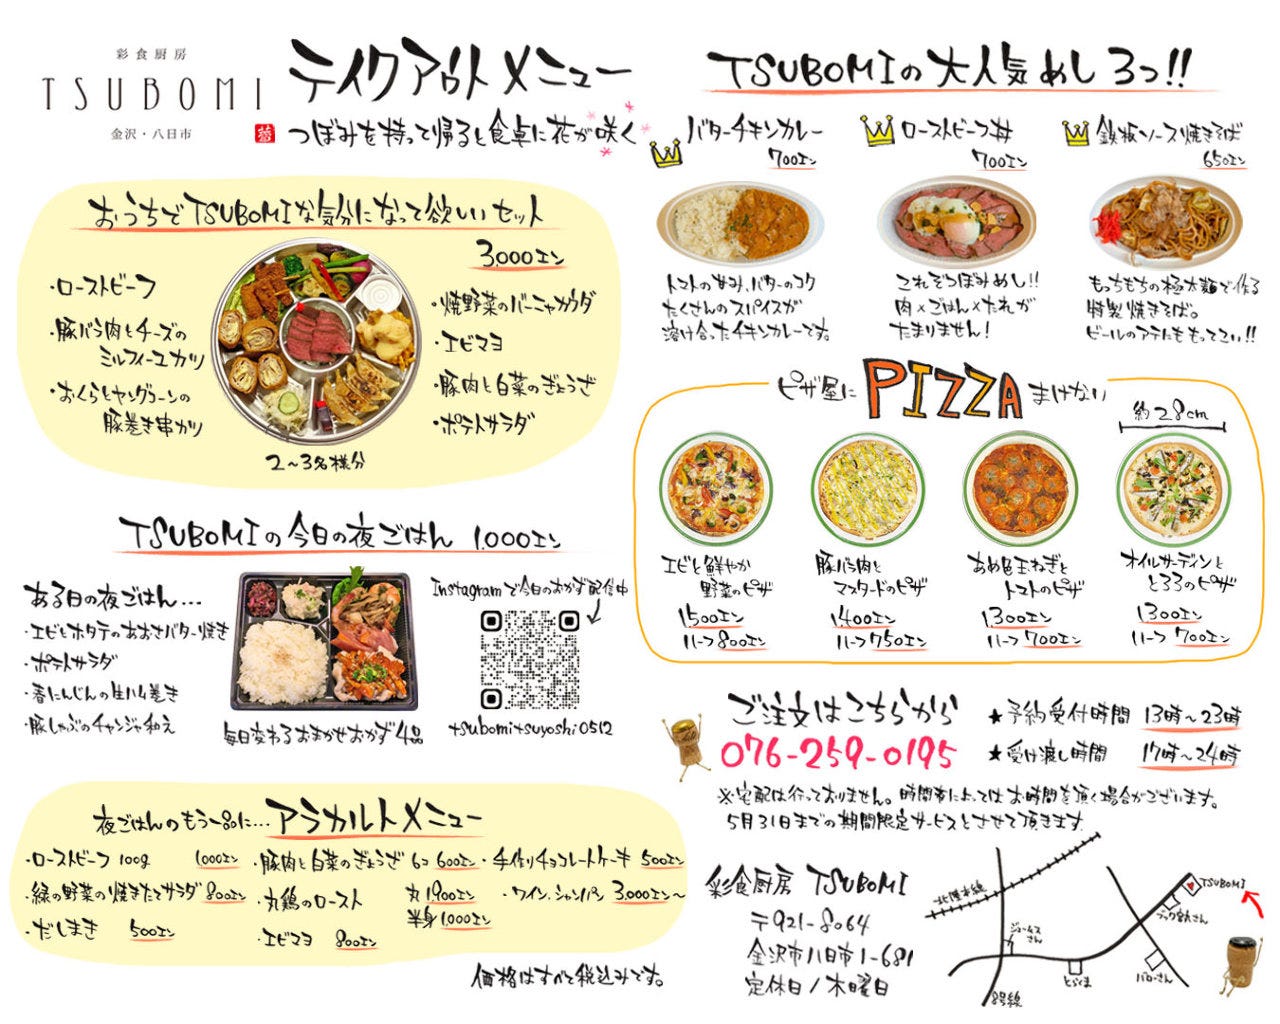 彩食厨房
TSUBOMI
金沢・八日市
蕾
テイクアウトメニュー
つぼみを持って帰ると食卓に花が咲く
おうちでTSUBOMIな気分になって欲しいセット
3,000エン
・ローストビーフ
・豚バラ肉とチーズの
ミルフィーユカツ
・おくらとヤングコーンの
豚巻き串カツ
・焼野菜のバーニャカウダ
・エビマヨ
・豚肉と白菜のぎょうざ
・ポテトサラダ
2〜3名様分
TSUBOMIの今日の夜ごはん 1,000エン
ある日の夜ごはん...
・エビとホタテのあおさバター焼き
・ポテトサラダ
・春にんじんの生ハム巻き
・豚しゃぶのチャンジャ和え
毎日変わるおまかせおかず4品
Instagramで今日のおかず配信中
tsubomitsuyoshi0512
夜ごはんのもう一品に... アラカルトメニュー
・ローストビーフ 100g 1,000エン
・緑の野菜の焼きたてサラダ 800エン
・だしまき 500エン
・豚肉と白菜のぎょうざ 6コ 600エン
・丸鶏のロースト 丸 1,900エン
半身 1,000エン
・エビマヨ 800エン
・手作りチョコレートケーキ 500エン
・ワイン、シャンパン 3,000エン〜
価格はすべて税込みです。
TSUBOMIの大人気めし3つ!!
バターチキンカレー
700エン
トマトの甘み、バターのコク
たくさんのスパイスが
溶け合ったチキンカレーです。
ローストビーフ丼
700エン
これぞつぼみめし!!
肉×ごはん×たれが
たまりません!
鉄板ソース焼きそば
650エン
もっちもちの極太麺で作る
特製焼きそば。
ビールのアテにももってこい!!
ピザ屋にPIZZAまけない
約28cm
エビと鮮やか
野菜のピザ
1,500エン
ハーフ 800エン
豚バラ肉と
マスタードのピザ
1,400エン
ハーフ 750エン
あめ色玉ねぎと
トマトのピザ
1,300エン
ハーフ 700エン
オイルサーディンと
とろろのピザ
1,300エン
ハーフ 700エン
ご注文はこちらから
076-259-0195
★予約受付時間 13時〜23時
★受け渡し時間 17時〜24時
※宅配は行っておりません。時間帯によってはお時間を頂く場合がございます。
5月31日までの期間限定サービスとさせて頂きます。
彩食厨房 TSUBOMI
〒921-8064
金沢市八日市1-681
定休日/木曜日
北陸本線
ジェームスさん
8号線
とらくま
バローさん
ブック宮丸さん
TSUBOMI